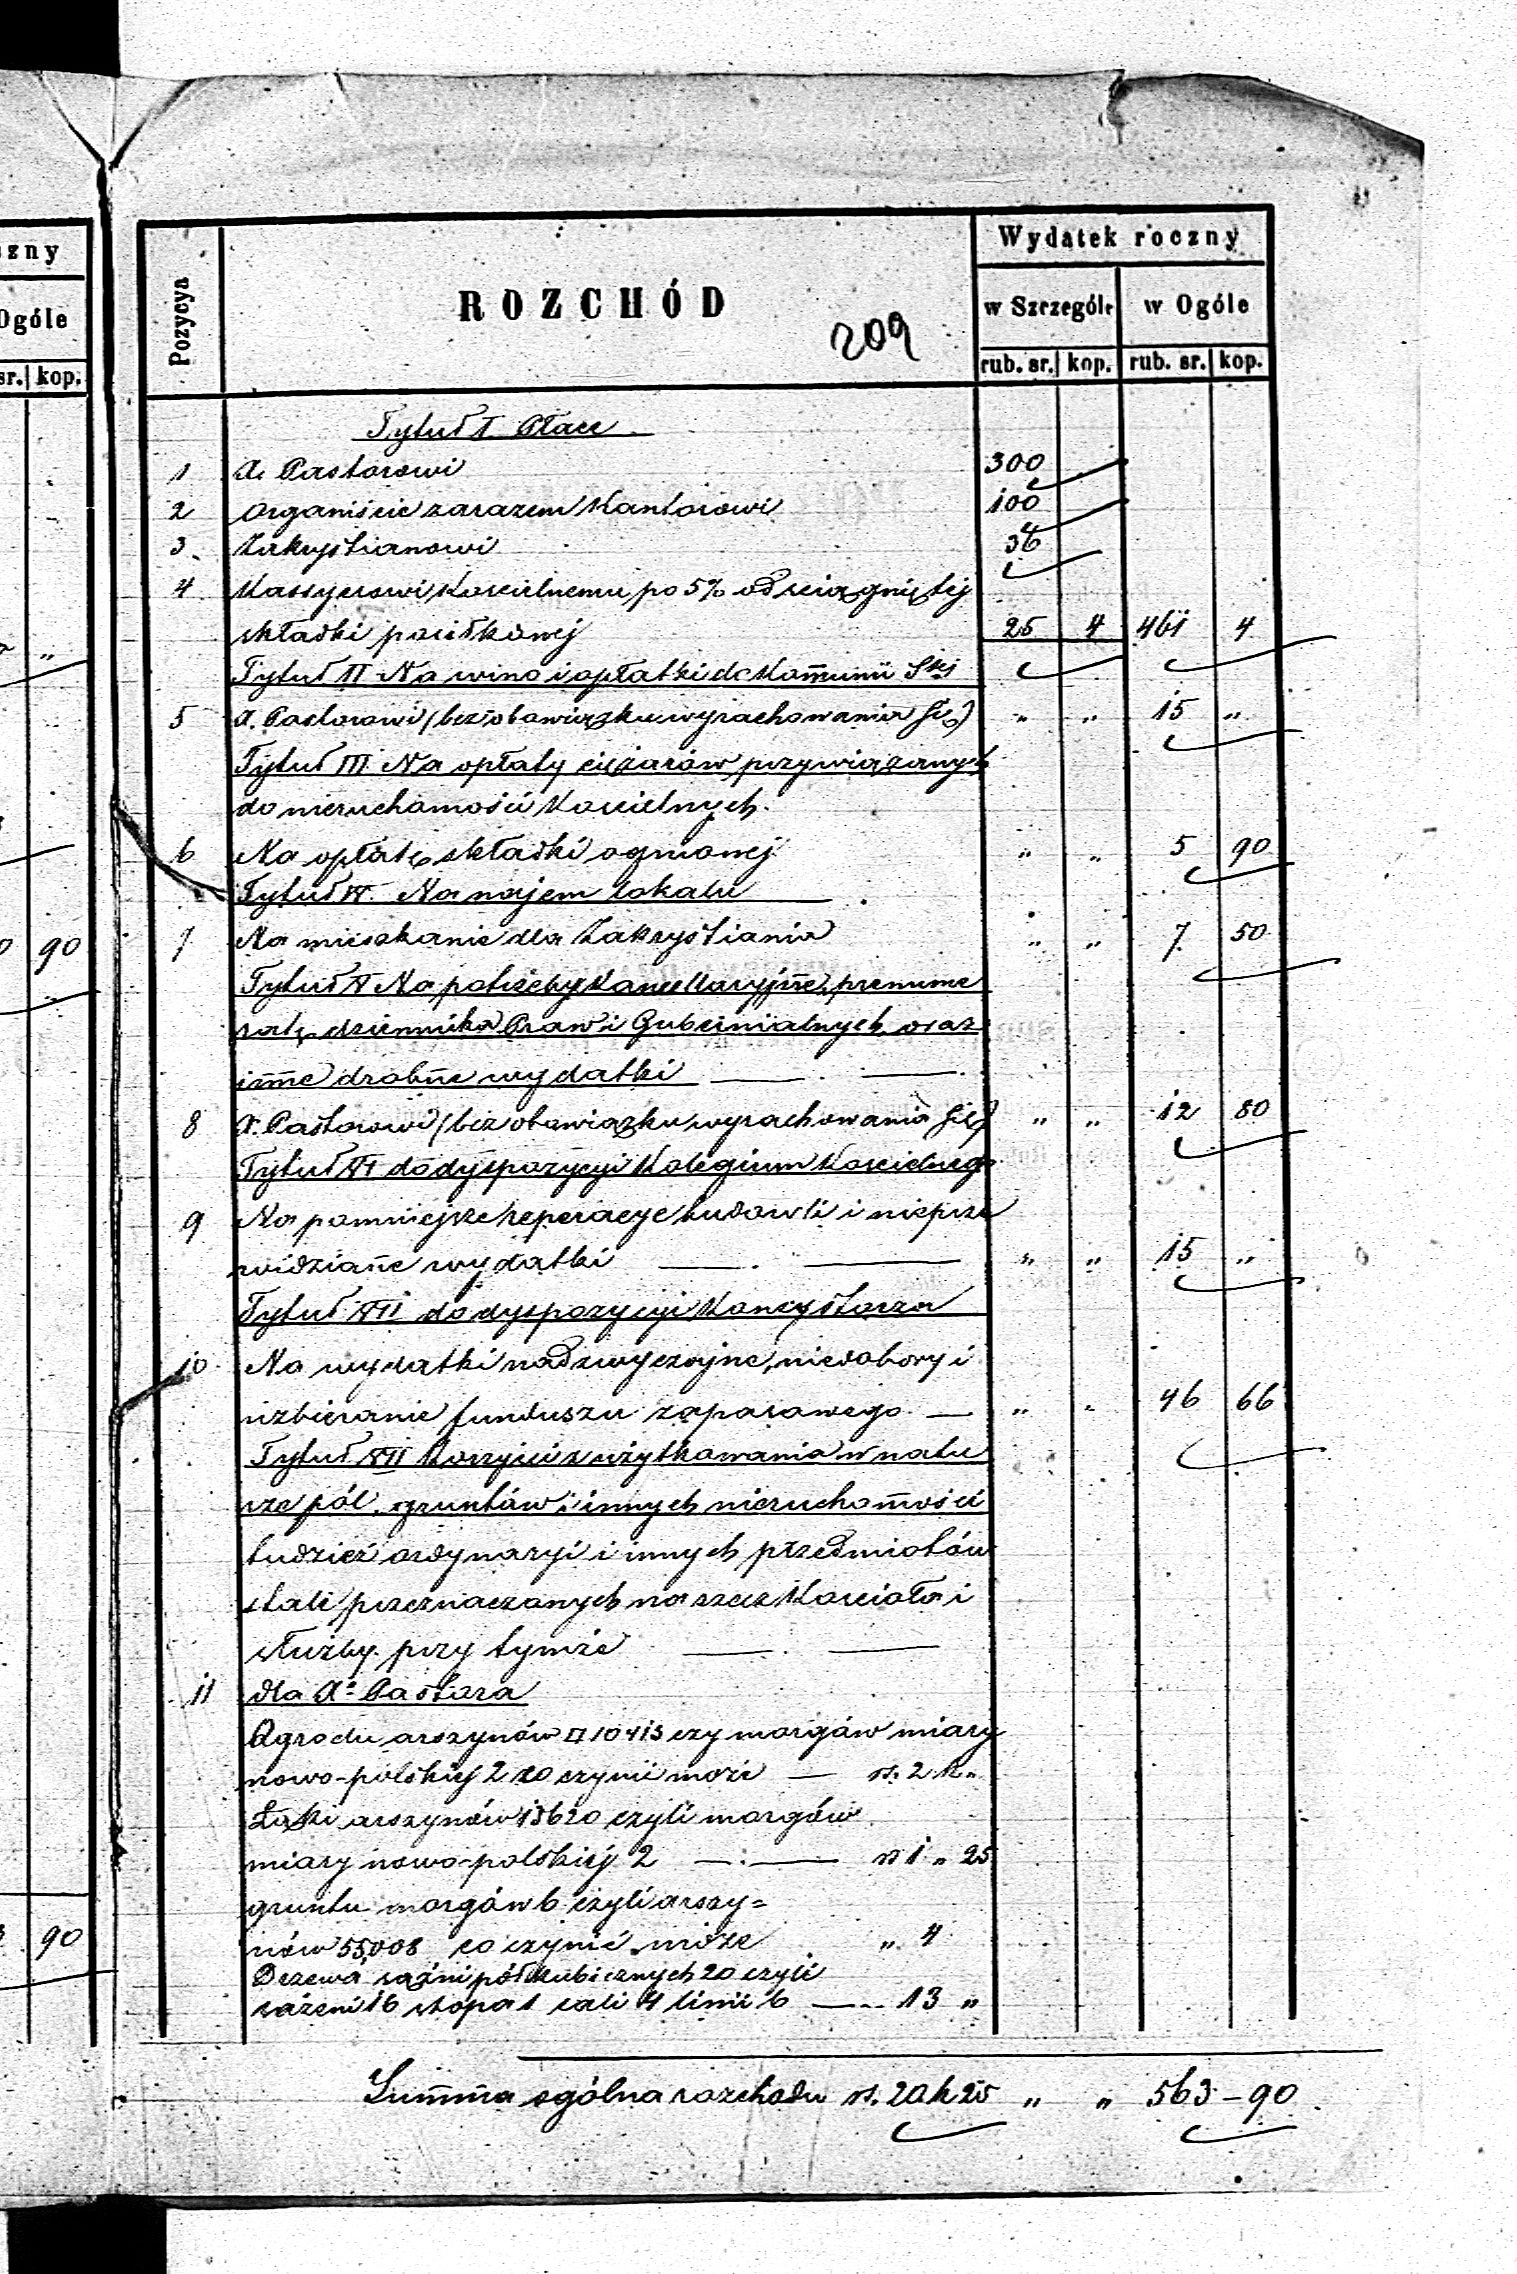 czny
Ogóle
sr. kop.
„
90
90
Pozycya
ROZCHÓD
209
Wydatek roczny
w Szczególe w Ogóle
rub. sr. kop. rub. sr. kop.
Tytuł I Płace
1 X. Pastorowi 300
2 Organiście zarazem Kantorowi 100
3 Zakrystianowi 36
4 Kassyerowi Kościelnemu po 5% od ściągniętej
składki posiłkowej 25 4 461 4
Tytuł II Na wino i opłatki do Kommunii Stej
5 X. Pastorowi (bez obowiązku wyrachowania się) „ „ 15 „
Tytuł III Na opłaty ciężarów przywiązanych
do nieruchomości Kościelnych.
6 Na opłatę składki ogniowej „ „ 5 90
Tytuł IV. Na najem lokalu
7 Na mieszkanie dla Zakrystiania „ „ 7 50
Tytuł V Na potrzeby Kancellaryjne, prenume
ratę dziennika Praw i Gubernialnych oraz
inne drobne wydatki
8 X. Pastorowi (bez obowiązku wyrachowania się) „ „ 12 80
Tytuł VI do dyspozycyi Kolegium Kościelnego
9 Na pomniejsze reperacye budowli i nieprze
widziane wydatki „ „ 15 „
Tytuł VII do dyspozycyi Konsystorza
10 Na wydatki nadzwyczajne, niedobory i
uzbieranie funduszu zapasowego „ „ 46 66
Tytuł VIII Korzyści z użytkowania w natu
rze pól, gruntów i innych nieruchomości
tudzież ordynaryi i innych przedmiotów
stale przeznaczonych na rzecz Kościoła i
służby przy tymże
11 dla X. Pastora
Ogrodu arszynów □ 10413 czy morgów miary
nowo-polskiej 2 co czynić może rs. 2 k „
Łąki arszynów 13620 czyli morgów
miary nowo-polskiej 2 rs 1 „ 25
gruntu morgów 6 czyli arszy=
nów 55,008 co czynić może „ 4
Drzewa sążni półkubicznych 20 czyli
sążeni 16 stopa 1 cali 4 linii 6 13 „
Summa ogólna rozchodu rs. 20 k 25 „ „ 563 - 90